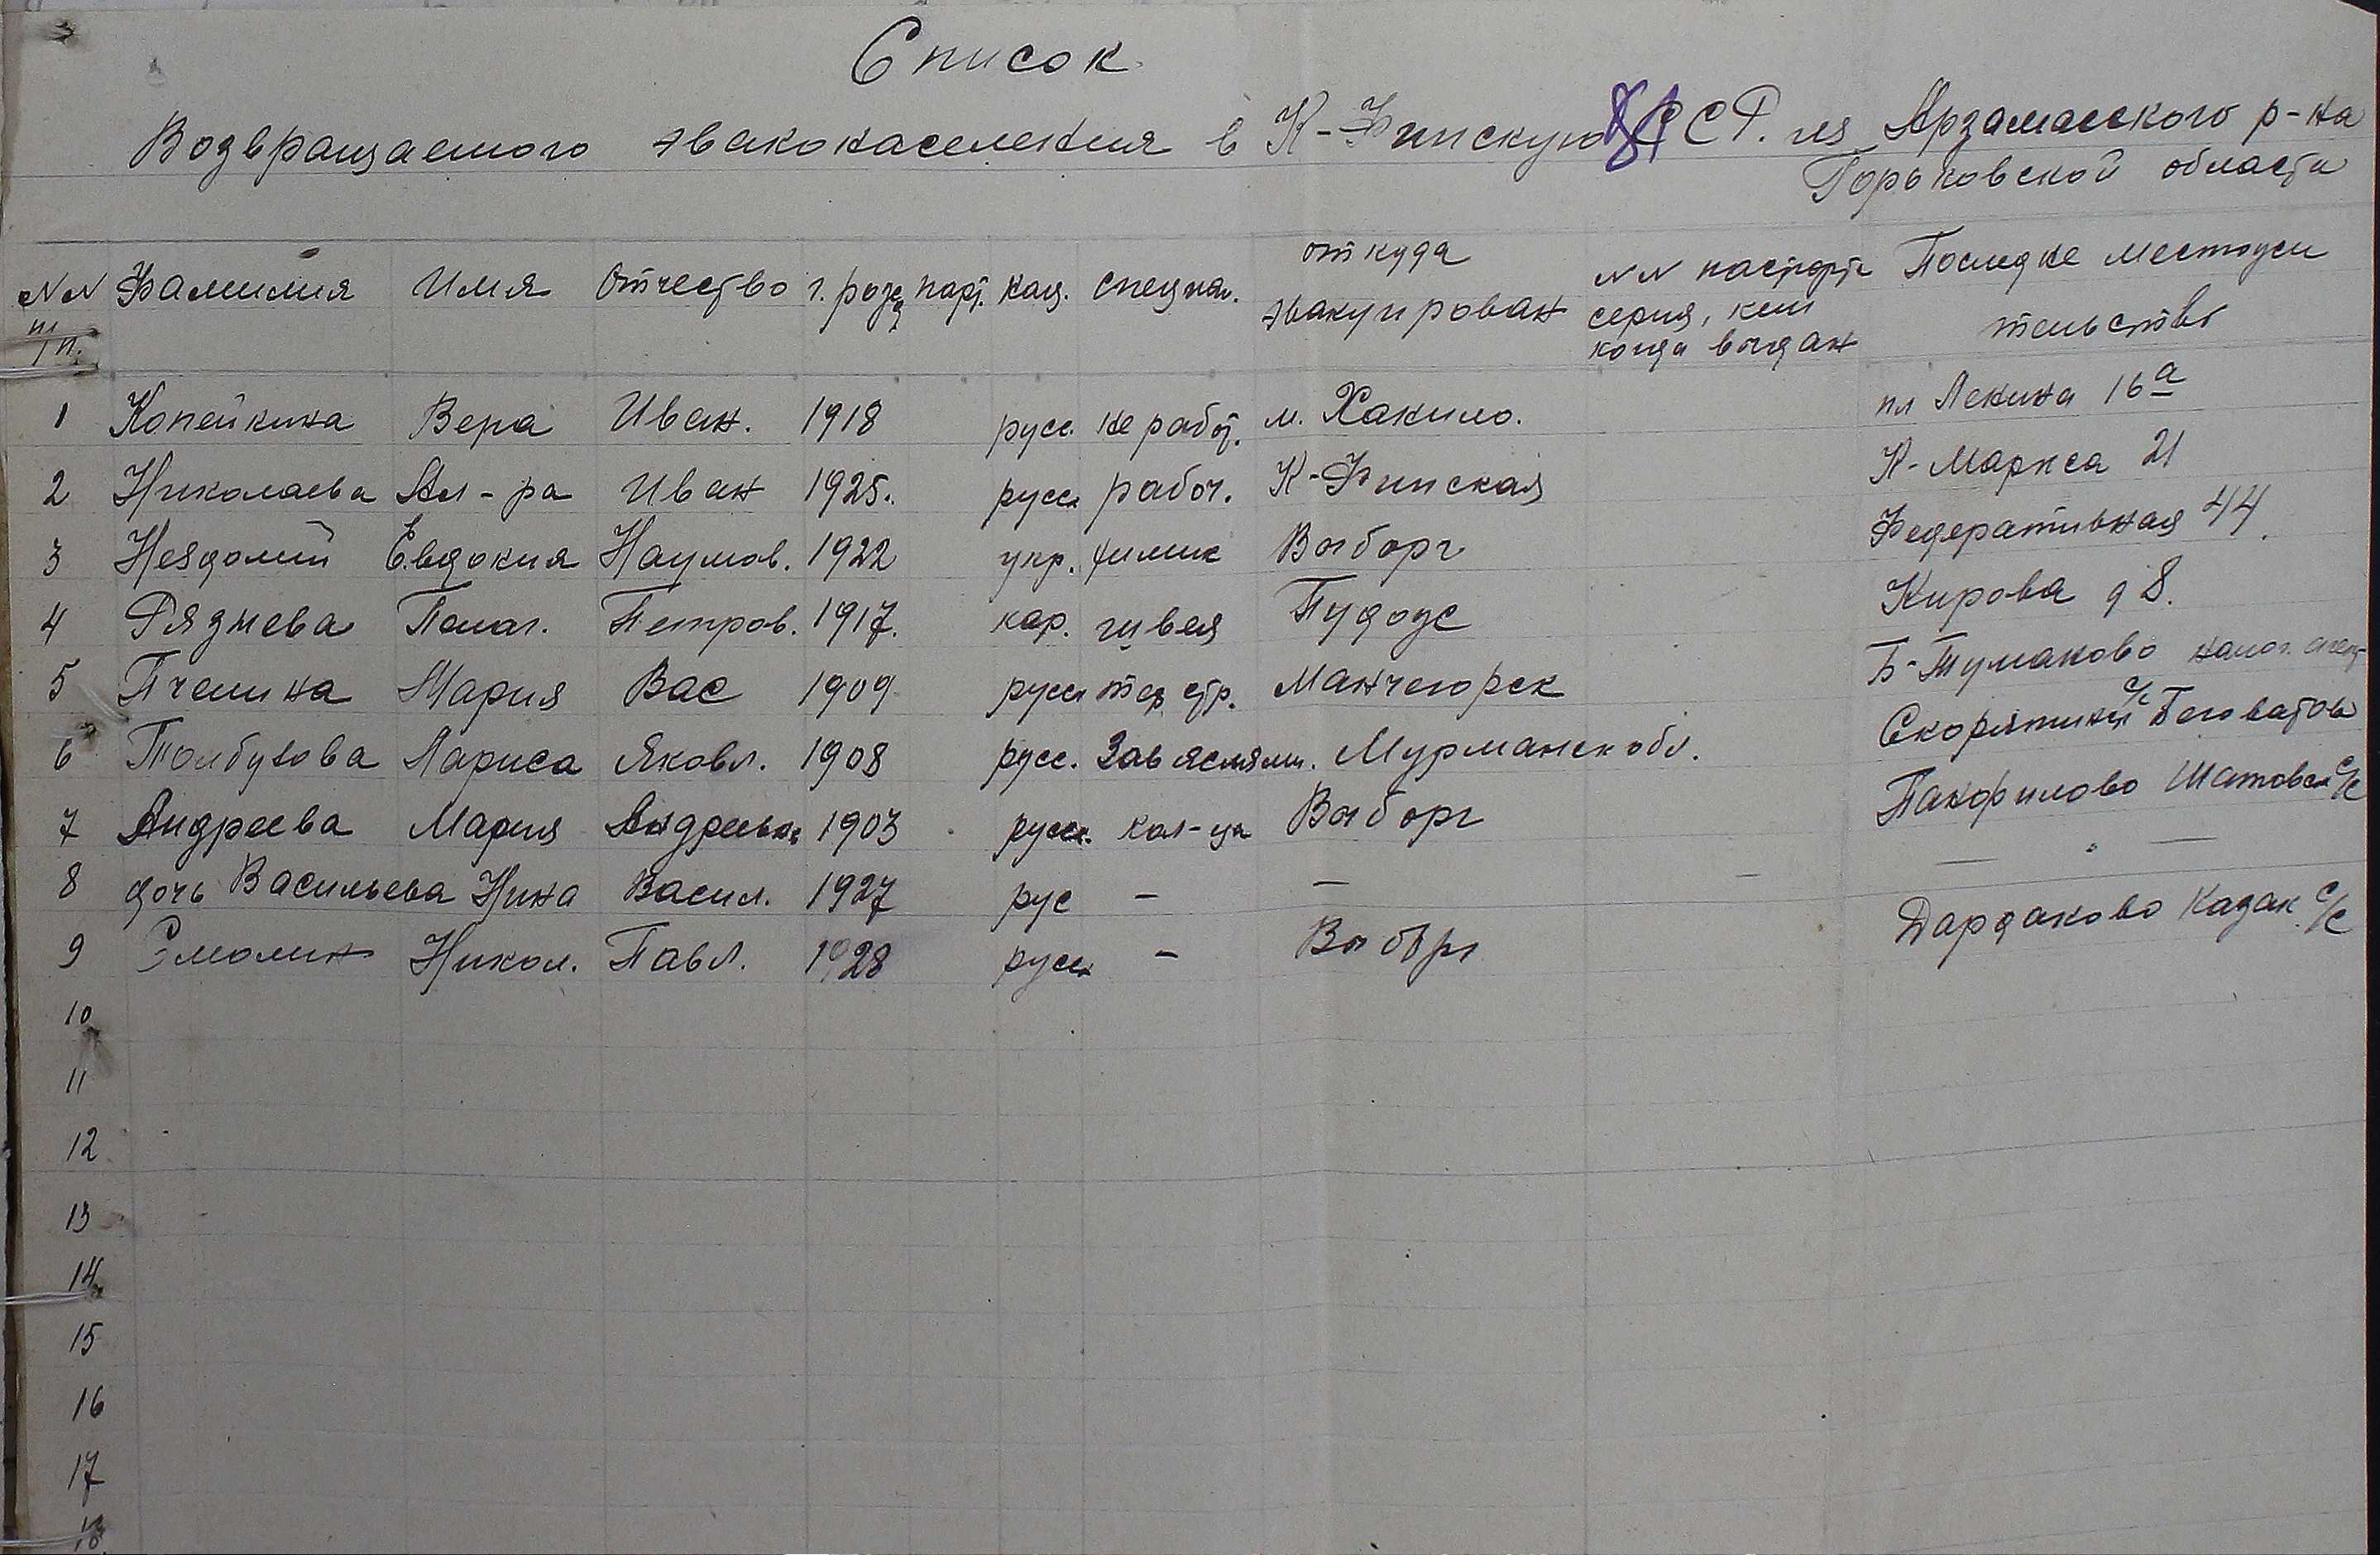 Список
Возвращаемого эваконаселения в К-Финскую ССР. из Арзамасского р-на
Горьковской области
NN п/п. Фамилия Имя Отчество г. рожд парт. нац. специал. откуда эвакуирован NN паспорта серия, кем когда выдан Последнее местожительство
1 Копейкина Вера Иван. 1918 русс. не работ. м. Хакило. пл Ленина 16а
2 Николаева Ал-ра Иван 1925. русск рабоч. К-Финская К-Маркса 21
3 Неядомий Евдокия Наумов. 1922 укр. химик Выборг Федеративная 44.
4 Рязнева Пелаг. Петров. 1917. кар. швея Пудож Кирова д 8.
5 Пчелина Мария Вас 1909 русск тех стр. Мончегорск Б-Туманово
6 Толбузова Лариса Яковл. 1908 русс. Зав яслями. Мурманск обл. Скорятино с/с Беговатов
7 Андреева Мария Андреевн. 1903 русск. кол-ца Выборг Панфилово Шатовск с/с
8 дочь Васильева Нина Васил. 1927 рус – – — " —
9 Смолин Никол. Павл. 1928 русск – Выборг Дардаково Казак. с/с
10
11
12
13
14
15
16
17
18